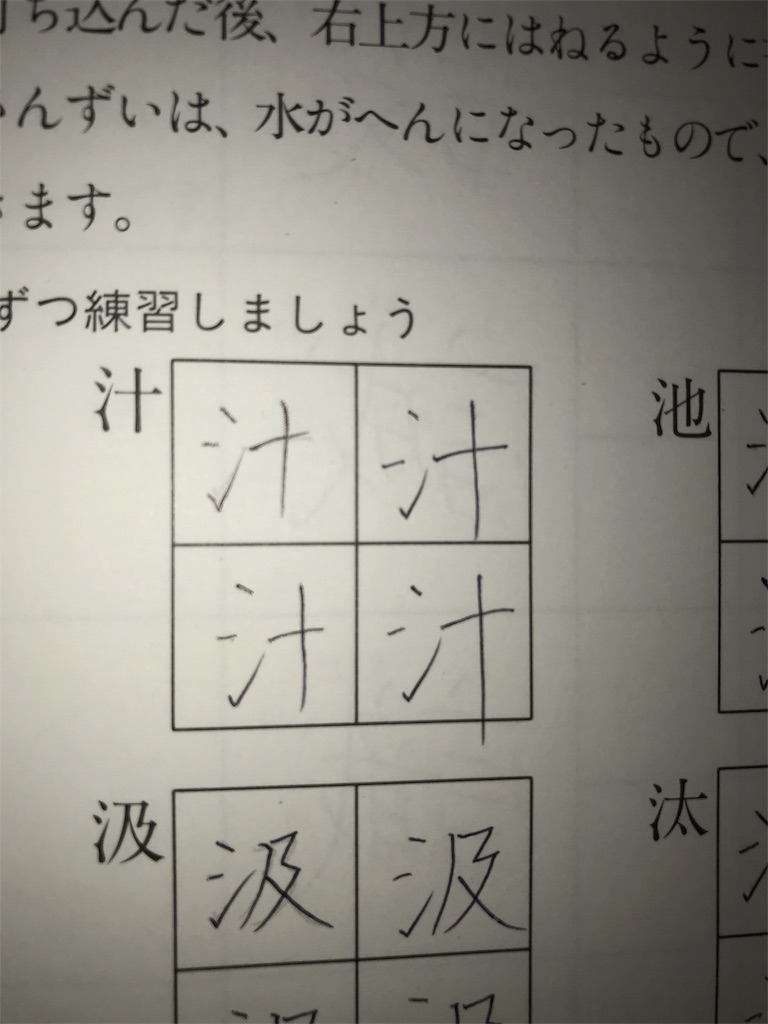 ち込んだ後、右上方にはねるように
んずいは、水がへんになったもので、
きます。
ずつ練習しましょう
汁 汁 汁 池
汁 汁
汲 汲 汲 汰